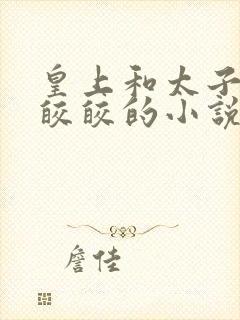 皇上和太子
皎皎的小説
詹佳